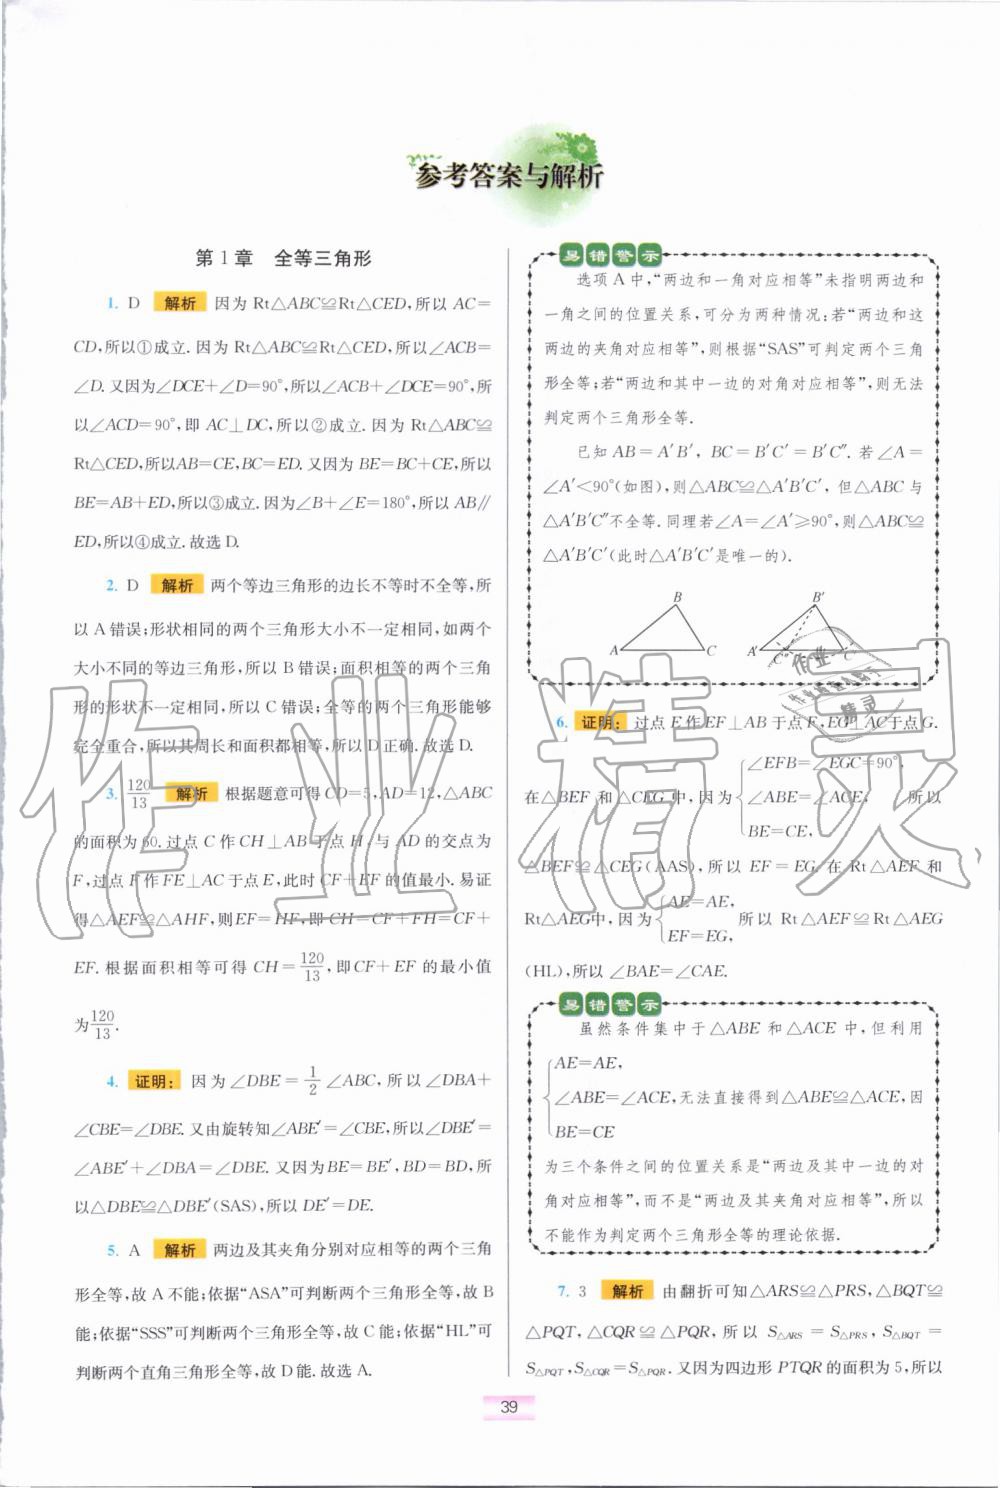 参考答案与解析
第1章 全等三角形
1. D 解析 因为 Rt△ABC≌Rt△CED,所以 AC=
CD,所以①成立.因为 Rt△ABC≌Rt△CED,所以∠ACB=
∠D.又因为∠DCE+∠D=90°,所以∠ACB+∠DCE=90°,所
以∠ACD=90°,即 AC⊥DC,所以②成立.因为 Rt△ABC≌
Rt△CED,所以AB=CE,BC=ED.又因为 BE=BC+CE,所以
BE=AB+ED,所以③成立.因为∠B+∠E=180°,所以 AB∥
ED,所以④成立.故选 D.
2. D 解析 两个等边三角形的边长不等时不全等,所
以 A 错误;形状相同的两个三角形大小不一定相同,如两个
大小不同的等边三角形,所以 B 错误;面积相等的两个三角
形的形状不一定相同,所以 C 错误;全等的两个三角形能够
完全重合,所以其周长和面积都相等,所以 D 正确.故选 D.
3. 120/13 解析 根据题意可得 CD=5,AD=12,△ABC
的面积为 60.过点 C 作 CH⊥AB 于点 H,与 AD 的交点为
F,过点 F 作 FE⊥AC 于点 E,此时 CF+EF 的值最小.易证
得△AEF≌△AHF,则EF=HF,即 CH=CF+FH=CF+
EF.根据面积相等可得 CH=120/13,即CF+EF 的最小值
为120/13.
4. 证明: 因为∠DBE=1/2∠ABC,所以∠DBA+
∠CBE=∠DBE.又由旋转知∠ABE′=∠CBE,所以∠DBE′=
∠ABE′+∠DBA=∠DBE.又因为BE=BE′,BD=BD,所
以△DBE≌△DBE′(SAS),所以 DE′=DE.
5. A 解析 两边及其夹角分别对应相等的两个三角
形全等,故 A 不能;依据“ASA”可判断两个三角形全等,故 B
能;依据“SSS”可判断两个三角形全等,故 C 能;依据“HL”可
判断两个直角三角形全等,故 D 能.故选 A.
易错警示
选项 A 中,“两边和一角对应相等”未指明两边和
一角之间的位置关系,可分为两种情况:若“两边和这
两边的夹角对应相等”,则根据“SAS”可判定两个三角
形全等;若“两边和其中一边的对角对应相等”,则无法
判定两个三角形全等.
已知 AB=A′B′,BC=B′C′=B′C″.若∠A=
∠A′<90°(如图),则△ABC≌△A′B′C′,但△ABC 与
△A′B′C″不全等.同理若∠A=∠A′≥90°,则△ABC≌
△A′B′C′(此时△A′B′C′是唯一的).
B B′
A C A′ C″ C′
6. 证明: 过点 E 作 EF⊥AB 于点 F,EG⊥AC于点 G.
∠EFB=∠EGC=90°,
在△BEF 和△CEG 中,因为 ∠ABE=∠ACE, 所以
BE=CE,
△BEF≌△CEG(AAS),所以 EF=EG.在 Rt△AEF 和
AE=AE,
Rt△AEG中,因为 所以 Rt△AEF≌Rt△AEG
EF=EG,
(HL),所以∠BAE=∠CAE.
易错警示
虽然条件集中于△ABE 和△ACE 中,但利用
AE=AE,
∠ABE=∠ACE,无法直接得到△ABE≌△ACE,因
BE=CE
为三个条件之间的位置关系是“两边及其中一边的对
角对应相等”,而不是“两边及其夹角对应相等”,所以
不能作为判定两个三角形全等的理论依据.
7. 3 解析 由翻折可知△ARS≌△PRS,△BQT≌
△PQT,△CQR≌△PQR,所以 S△ARS=S△PRS,S△BQT=
S△PQT,S△CQR=S△PQR.又因为四边形 PTQR 的面积为 5,所以
39
作业精灵